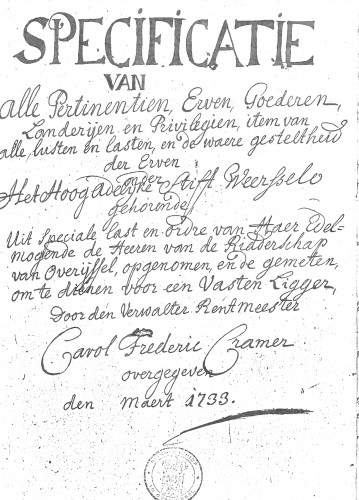 SPECIFICATIE
VAN
alle Pertinentien, Erven, Goederen,
Landerijen en Privilegien, item van
alle, lusten en lasten, en de waere gesteltheid
der Erven
onder
Het Hoog Adelijke Stift Weersselo
gehorende
Uit Speciale last en ordre van Haer Edel-
mogende de Heeren van de Ridderschap
van Overijssel, opgenomen, ende gemeten,
om te dienen voor een Vasten Ligger,
Door den Verwalter Rentmeester
Carol Frederic Cramer
overgegeven
den Maert 1733.